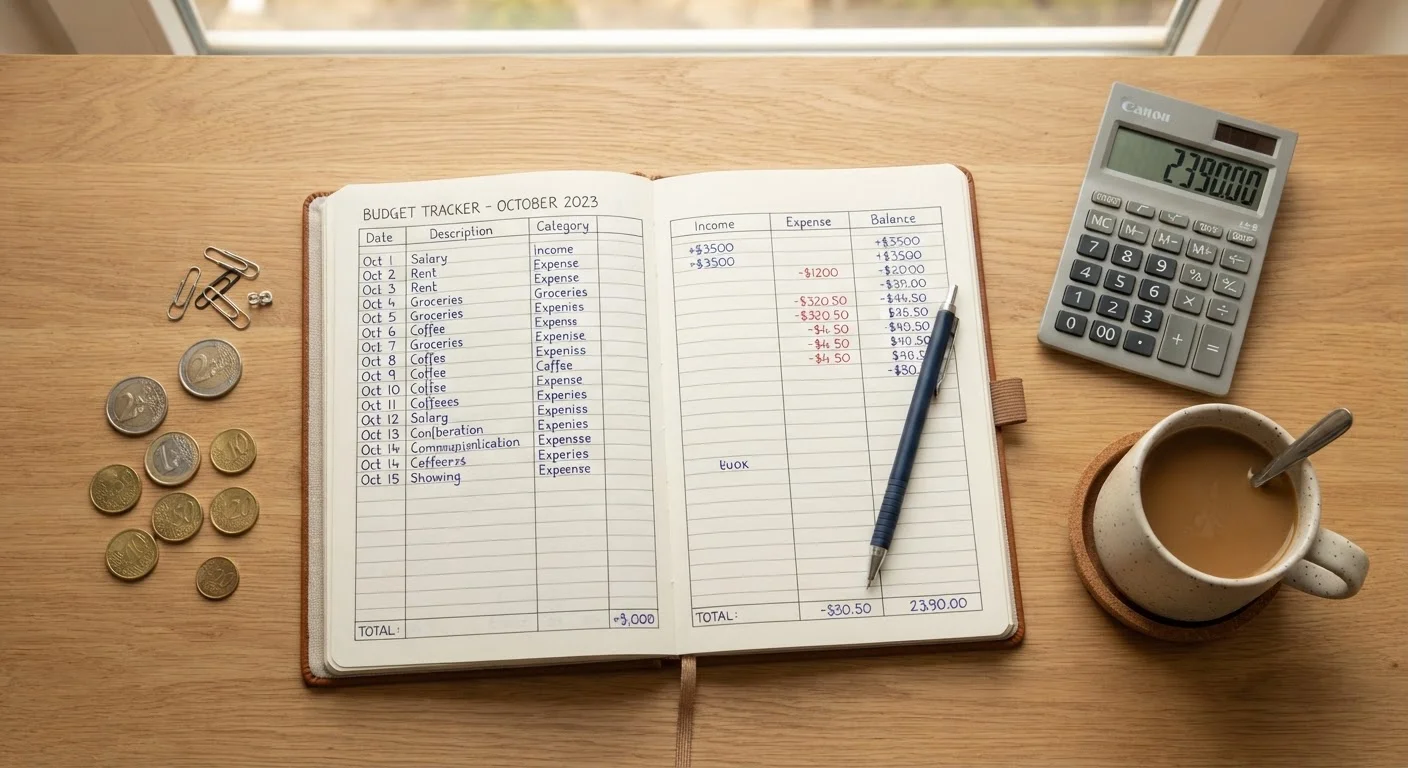 BUDGET TRACKER - OCTOBER 2023
Date Description Category
Oct 1 Salary Income
Oct 2 Rent Expense
Oct 3 Rent Expense
Oct 4 Groceries Groceries
Oct 5 Groceries Expenies
Oct 6 Coffee Expenss
Oct 7 Groceries Expenise
Oct 8 Coffes Expeniss
Oct 9 Coffee Caffee
Oct 10 Coffise Expense
Oct 11 Coffeees Experies
Oct 12 Salarg Expeniss
Oct 13 Conſberation Expenies
Oct 14 Expensse
Oct 14 Experies
Oct 15 Showing Expeense
TOTAL:
Income Expense Balance
+$3500 +$3500
+$3500 +$3500
-$1200 -$2000
-$39.00
-$320.50 -$44.50
-$320.50 $35.50
-$40.50
$40.50
-$4 50
-$30.
TOTAL: -$30.50 23.90.00
Canon
2390.00
NC M- M-
7 8 9 %
4 5 6 × ÷
1 2 3
0 00 . + =